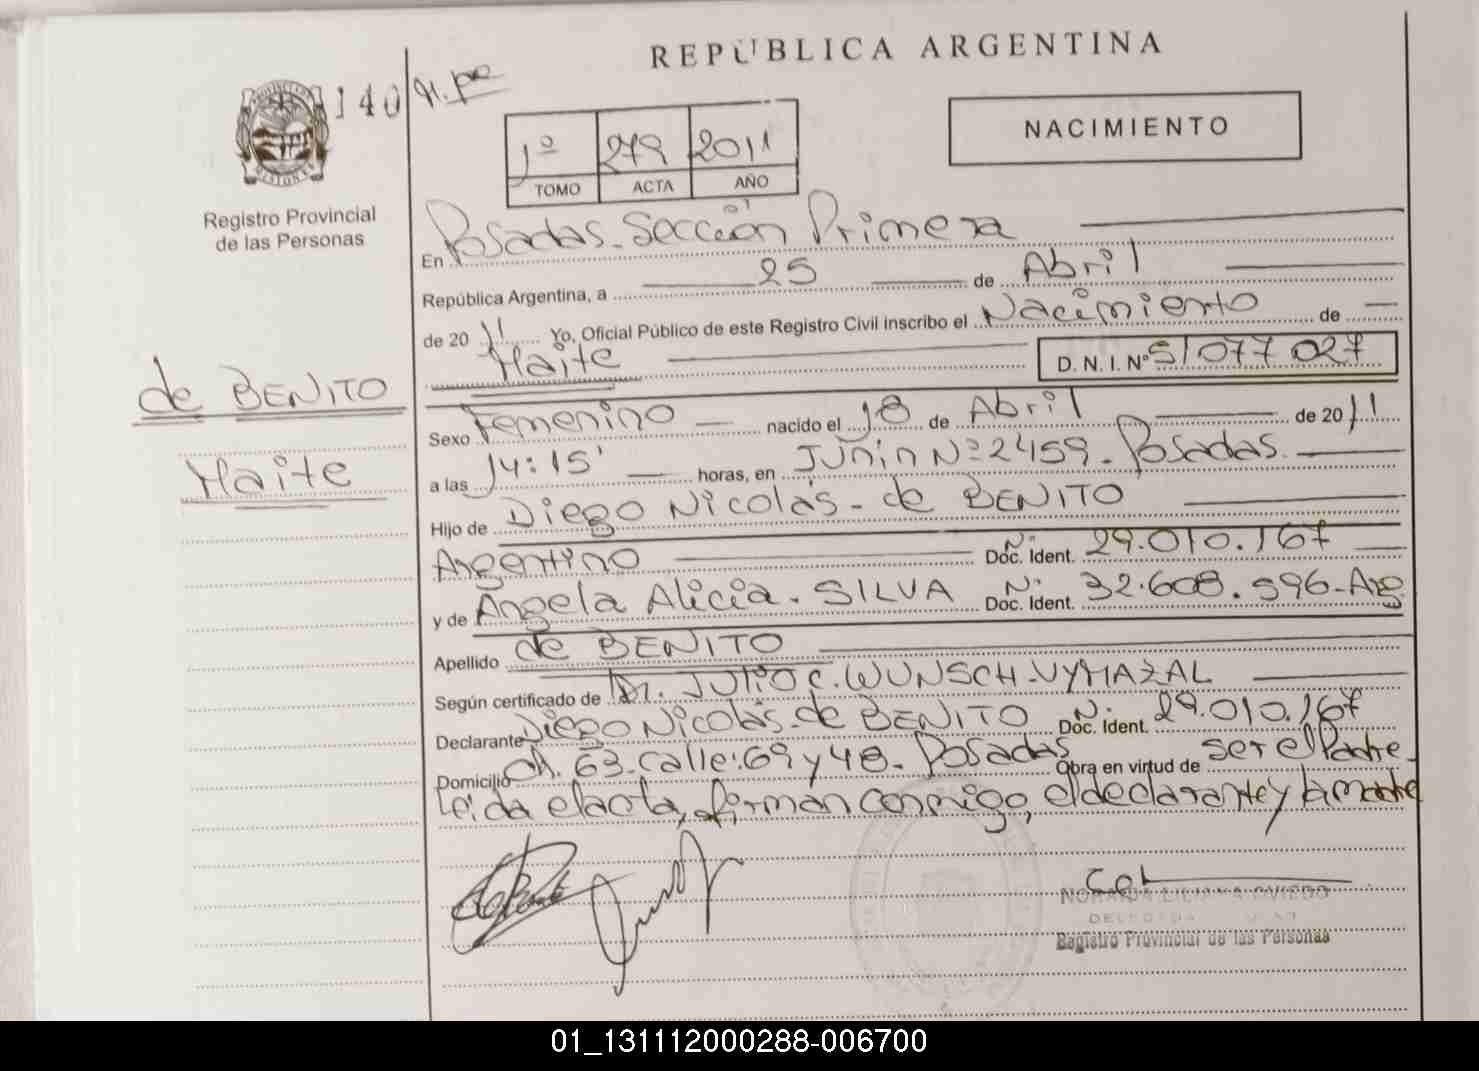 REPUBLICA ARGENTINA
140
NACIMIENTO
1º 279 2011
TOMO ACTA AÑO
Registro Provincial
de las Personas
En Posadas-Sección Primera
República Argentina, a 25 de Abril
de 20 11 Yo, Oficial Público de este Registro Civil inscribo el Nacimiento de
Maite D. N. I. Nº 51077027
de BENITO
Maite
Sexo Femenino nacido el 18 de Abril de 2011
a las 14:15' horas, en Junín Nº 2459- Posadas
Hijo de Diego Nicolás- de BENITO
Argentino Nº Doc. Ident. 29.010.167
y de Angela Alicia- SILVA Nº Doc. Ident. 32.608.596-Arg
Apellido de BENITO
Según certificado de Dr. JULIO C. WUNSCH-VYMAZAL
Declarante Diego Nicolás-de BENITO Nº Doc. Ident. 29.010.167
Domicilio Ch. 63-calle:69 y 48- Posadas Obra en virtud de ser el Padre-
Leída el acta, firman conmigo, el declarante y la madre
LILIANA OVIEDO
Registro Provincial de las Personas
01_131112000288-006700